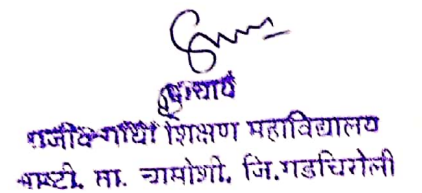 प्राचार्य
राजीव गांधी शिक्षण महाविद्यालय
आष्टी, ता. चामोर्शी, जि.गडचिरोली